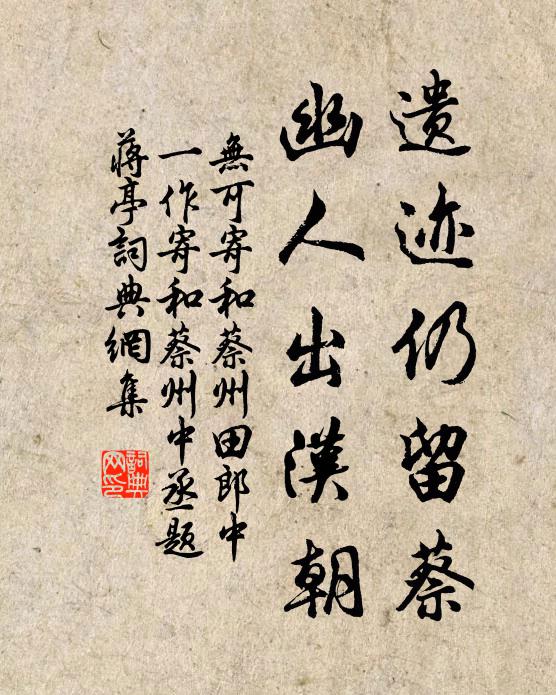 遗迹仍留蔡
幽人出漢朝
無可寄和蔡州田郎中
一作寄和蔡州中丞題
蒋亭詞典網集
詞典
网印